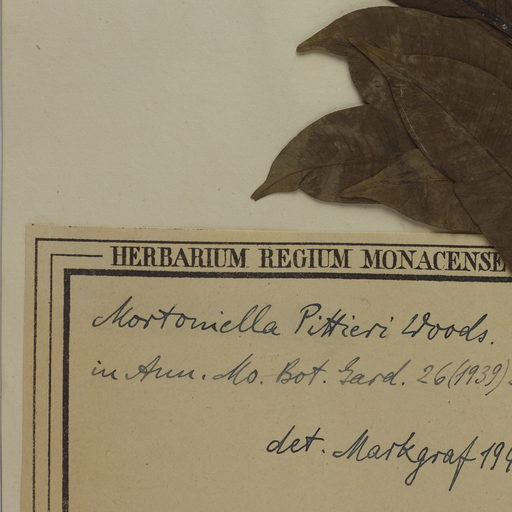 HERBARIUM REGIUM MONACENSE
Mortoniella Pittieri Woods.
in Ann. Mo. Bot. Gard. 26 (1939)
det. Markgraf 194